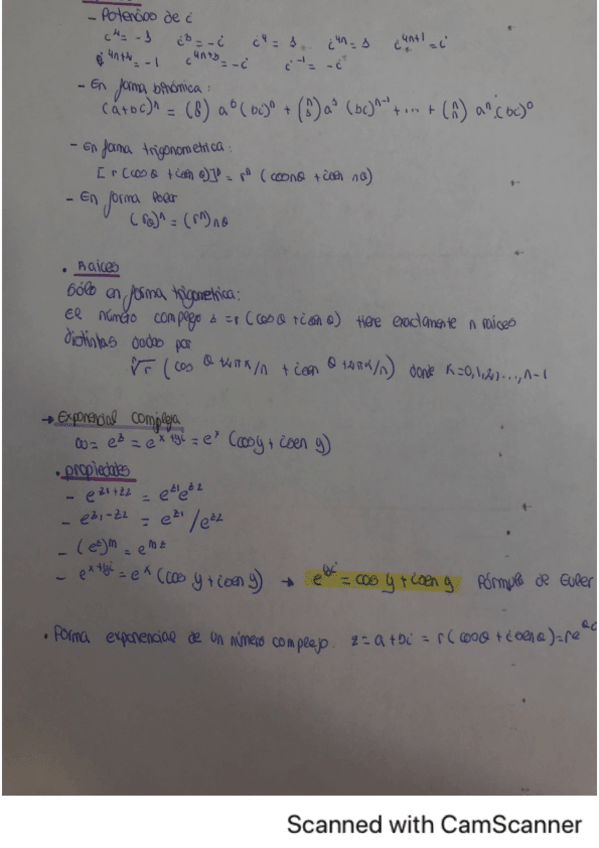 - Potencias de i
i² = -1   i³ = -i   i⁴ = 1   i⁴ⁿ = 1   i⁴ⁿ⁺¹ = i
i⁴ⁿ⁺² = -1   i⁴ⁿ⁺³ = -i   i⁻¹ = -i
- En forma binómica:
(a+bi)ⁿ = (n 0) a⁰ (bi)ⁿ + (n 1) a¹ (bi)ⁿ⁻¹ + ... + (n n) aⁿ (bi)⁰
- En forma trigonometrica:
[r (cos θ + i sen θ)]ⁿ = rⁿ (cos nθ + i sen nθ)
- En forma Polar
(rθ)ⁿ = (rⁿ)nθ
• Raices
Sólo en forma trigonometrica:
El número complejo z = r (cos θ + i sen θ) tiene exactamente n raices
distintas dadas por
ⁿ√r (cos θ+2πk/n + i sen θ+2πk/n) donde k=0,1,2,...,n-1
→ Exponencial compleja
ω = e^z = e^x+yi = e^x (cos y + i sen y)
• propiedades
- e^z1+z2 = e^z1 e^z2
- e^z1-z2 = e^z1 / e^z2
- (e^z)^m = e^mz
- e^x+yi = e^x (cos y + i sen y) → e^yi = cos y + i sen y Fórmula de Euler
• Forma exponencial de un número complejo. z = a + bi = r (cos θ + i sen θ) = re^θi
Scanned with CamScanner